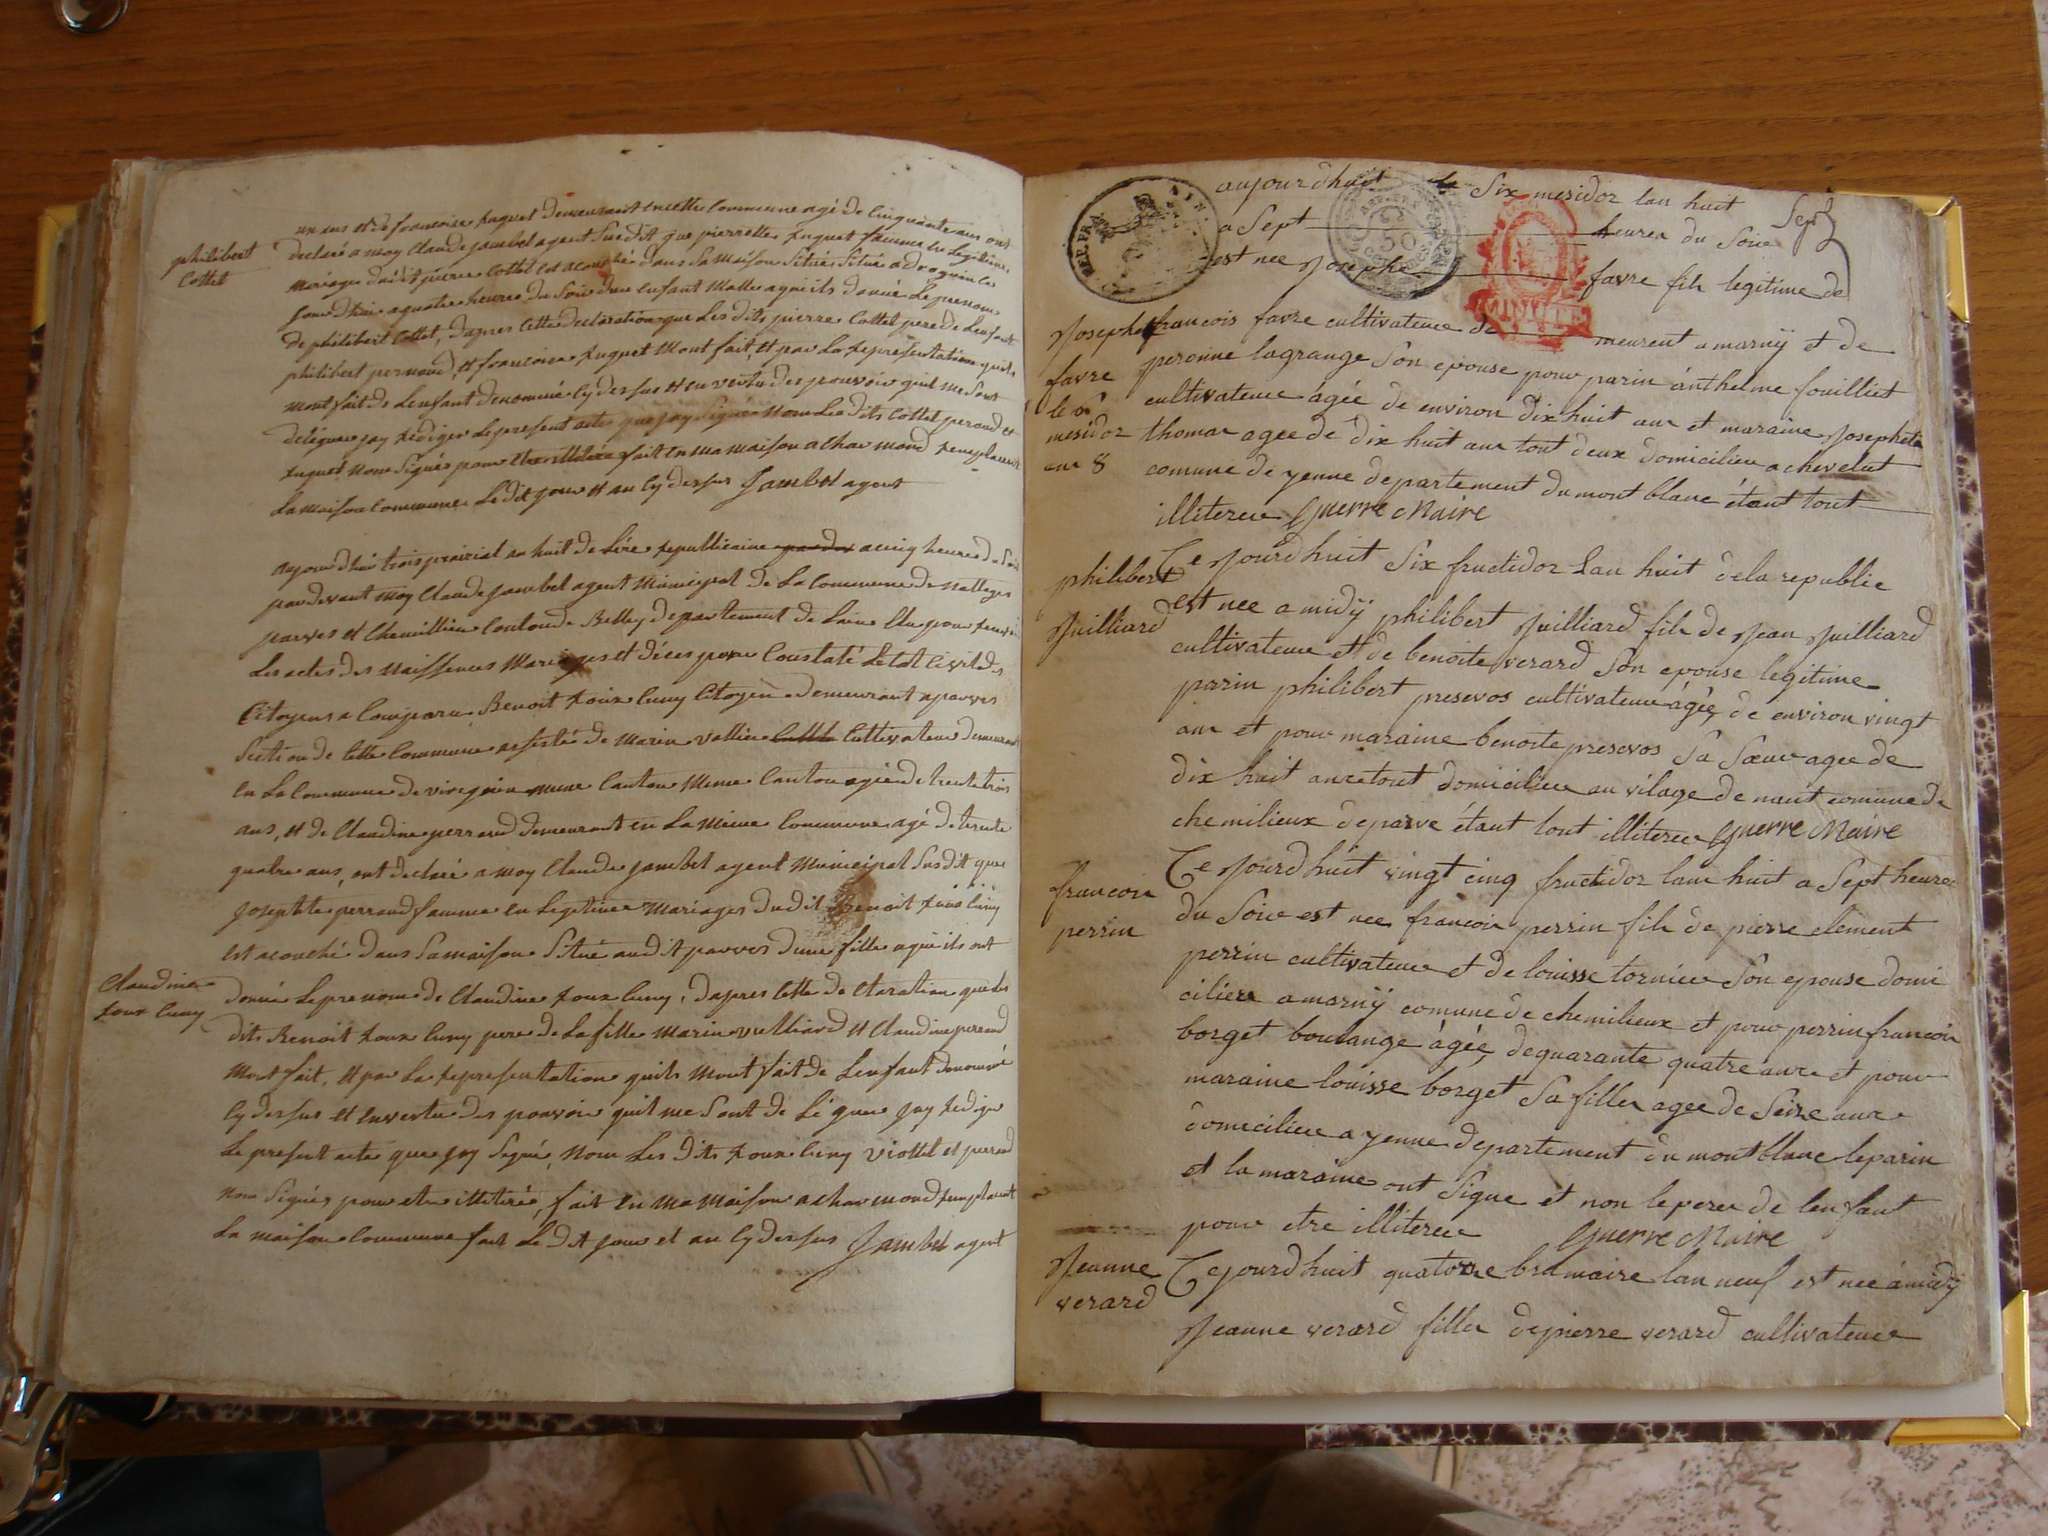 philibert
Cottet
un ans et de francoise huguet demeurant en cette Commune agé de Cinquante ans ont
declaré a moy Claude jambet agent Susdit que pierrette huguet famme en Legitime
Mariage dudit pierre Cottet est acouchée dans Sa maison Situé a
jourdhui a quatre heure du Soir dun enfant Malle a qui ils donné Le prenom
de philibert Cottet, dapres Cette declaration que Les dits pierre Cottet pere de Lenfant
philibert pernoud, et francoise huguet Mont fait, et par La representation quils
Mont fait de Lenfant denommé Cy dessus et en vertu des pouvoir quil me Sont
delegue jay rediger Le present acte que jay Signé Nom Les dits Cottet peroud et
huguet Nom Signés pour fait en ma maison a charmond remplacent
La maison Commune Le dit jour et an Cy dessus Jambet agent
aujourdhui trois prairial an huit de Lere republicaine a cinq heure du Soir
pardevant moy Claude jambet agent Municipal de La Commune de Nattages
parves et Chemillieu Canton de Belley departement de Lain Elu pour
Les actes des Naissences Mariages et déces pour Constaté Letat Civil des
Citoyens a Comparu Benoit roux Cuny Citoyen demeurant a parves
Section de Cette Commune assisté de Marin vullier Cultivateur demeurant
En La Commune de virignin meme Canton agé de trente trois
ans, et de Claudine perroud demeurant en La Meme Commune agé de trente
quatre ans, ont declaré a moy Claude jambet agent Municipal Susdit que
josephte perroud famme en Legitime Mariages du dit Benoit roux Cuny
est acouché dans Sa maison Situé audit parves dune fille a qui ils ont
Claudine
roux Cuny
donné Le prenom de Claudine roux Cuny, dapres Cette declaration que Les
dits Benoit roux Cuny pere de La fille Marin vulliard et Claudine perroud
Mont fait, et par La representation quils Mont fait de Lenfant denommé
Cy dessus et en vertu des pouvoir quil me Sont de Légue jay rediger
Le present acte que jay Signé, Nom Les dits roux Cuny viollet et perroud
Nom Signés pour etre illitiré, fait en ma maison a charmond remplacent
La maison Commune fait Le dit jour et an Cy dessus Jambet agent
aujourdhuit le Six mesidor lan huit
Sept
a Sept heures du Soir
est nee Josephe favre fils legitime de
Josephe
favre
le 6
mesidor
an 8
francois favre cultivateur de meurent a marnÿ et de
peronne lagrange Son epouse pour parin ánthelme fouilliet
cultivateur ágée de environ dix huit ans et maraine Josephete
thomas agee de dix huit ans tout deux domicilies a chevelut
comune de yenne departement du mont blanc étant tout
illiteres Guerre Maire
philibert
Juilliard
Ce Jourdhuit Six fructidor Lan huit dela republic
est nee a midÿ philibert Juilliard fils de Jean Juilliard
cultivateur et de benoite verard Son epouse legitime
parin philibert presevos cultivateur ágée de environ vingt
ans et pour maraine benoite presevos Sa Sœur agee de
dix huit ans etout domicilies au vilage de nant comune de
chemilieux de parve étant tout illiteres Guerre Maire
francois
perrin
Ce Jourdhuit vingt cinq fructidor lan huit a Sept heures
du Soir est nee francois perrin fils de pierre clement
perrin cultivateur et de louisse tornier Son epouse domi
ciliers a marnÿ comune de chemilieux et pour perrin francois
borget boulangé ágée dequarante quatre ans et pour
maraine louisse borget Sa filles agee de Seize ans
domicilies a yenne departement du montblanc le parin
et la maraine ont Signe et non le peres de len fant
pour etre illiteres Guerre Maire
Jeanne
verard
Ce jourdhuit quatorze brumaire lan neuf est nee ámidÿ
Jeanne verard filles depierre verard cultivateur